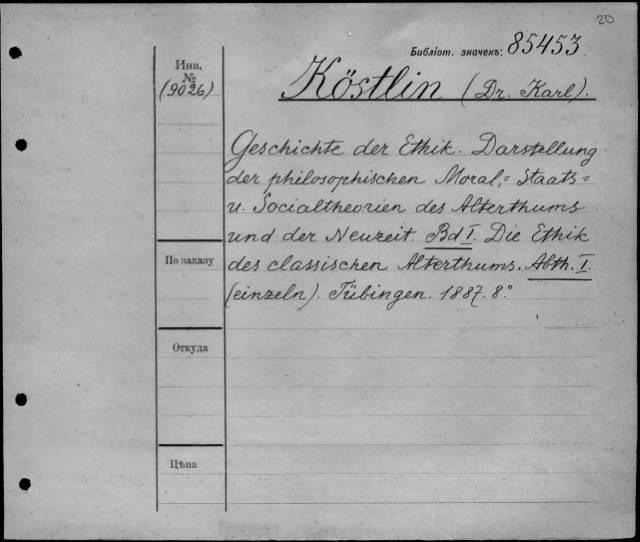 20
Библіот. значекъ: 85453
Инв.
№
(9026)
Köstlin (Dr. Karl).
Geschichte der Ethik. Darstellung
der philosophischen Moral,= Staats=
u. Socialtheorien des Alterthums
und der Neuzeit. Bd I. Die Ethik
des classischen Alterthums. Abth. I.
(einzeln). Tübingen. 1887. 8°
По заказу
Откуда
Цѣна